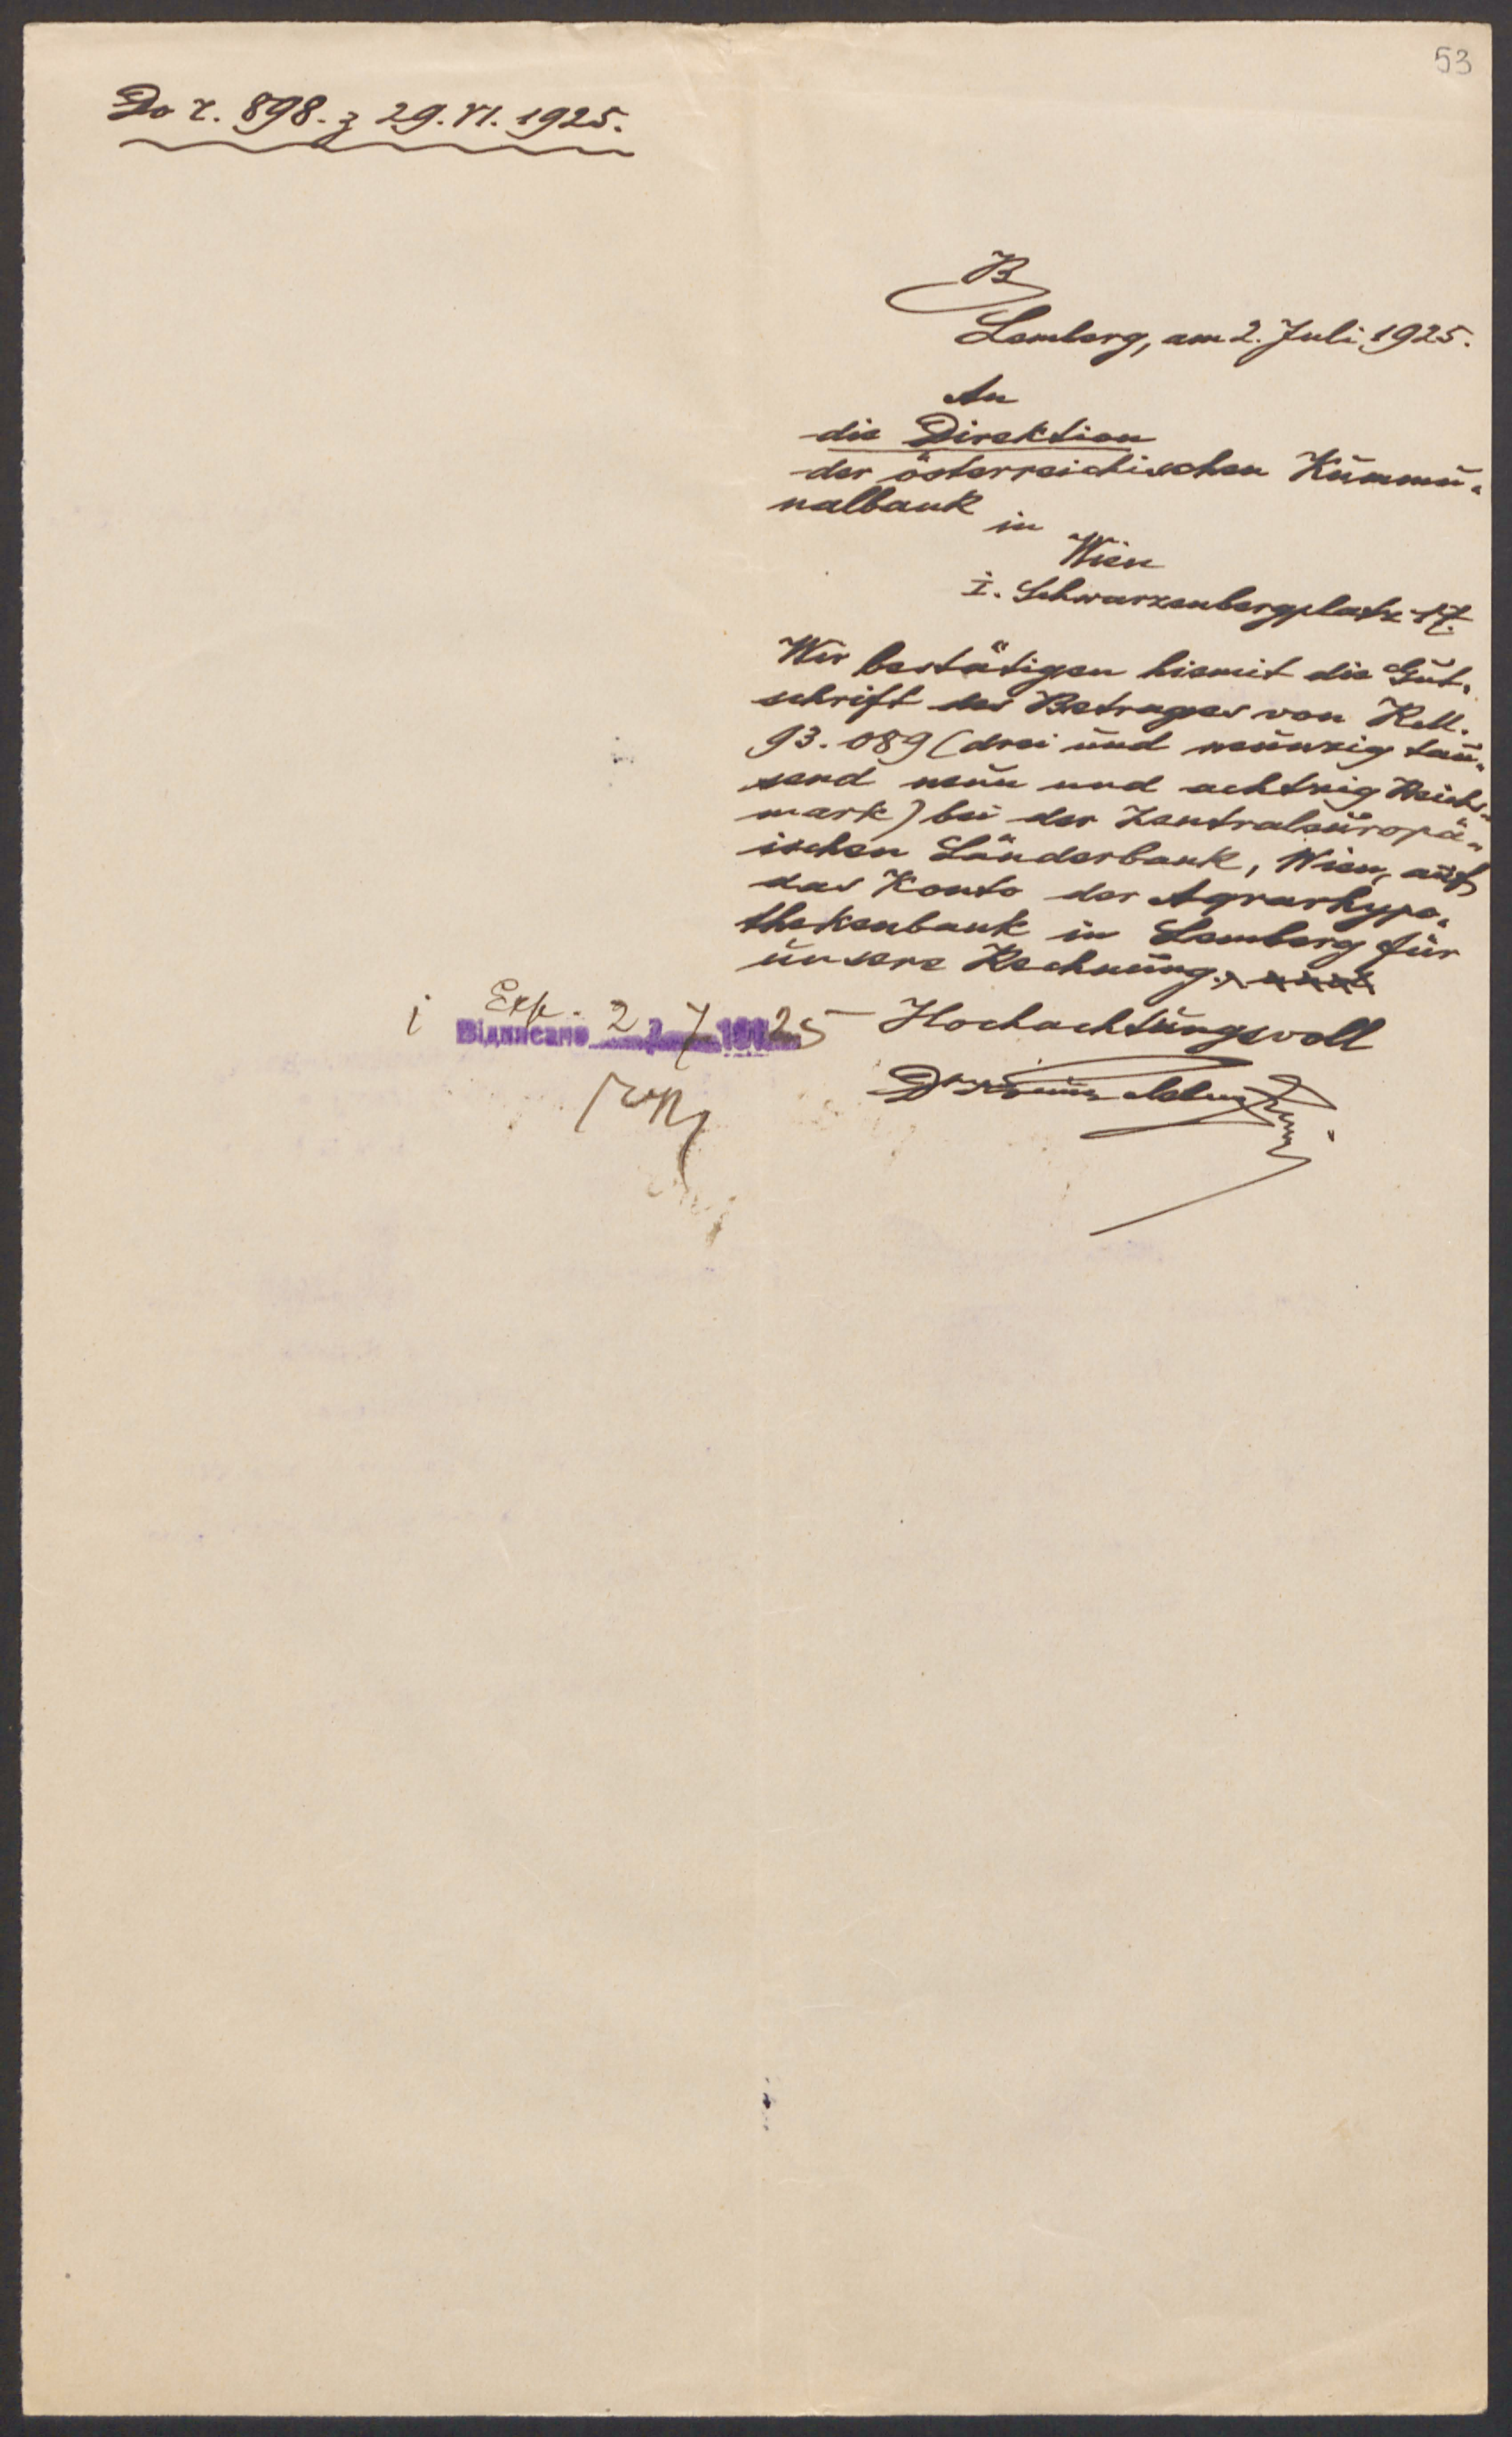 53
Do r. 898. z 29.VI. 1925.
B
Lemberg, am 2. Juli 1925.
An
die Direktion
der österreichischen Kŭmmŭ-
nalbank
in
Wien
I. Schwarzenbergplatz 17.
Wir bestätigen hiemit die Gŭt-
schrift des Betrages von R.M.
93.089 (drei ŭnd neŭnzig taŭ-
send neŭn und achtzig Reichs-
mark) bei der Zentraleŭropä-
ischen Länderbank, Wien, aŭf
das Konto der Agrarhypo-
thekenbank in Lemberg für
ŭnsere Rechnŭng.
Exp. 2 7 25
Відписано
Hochachtŭngsvoll
Dr